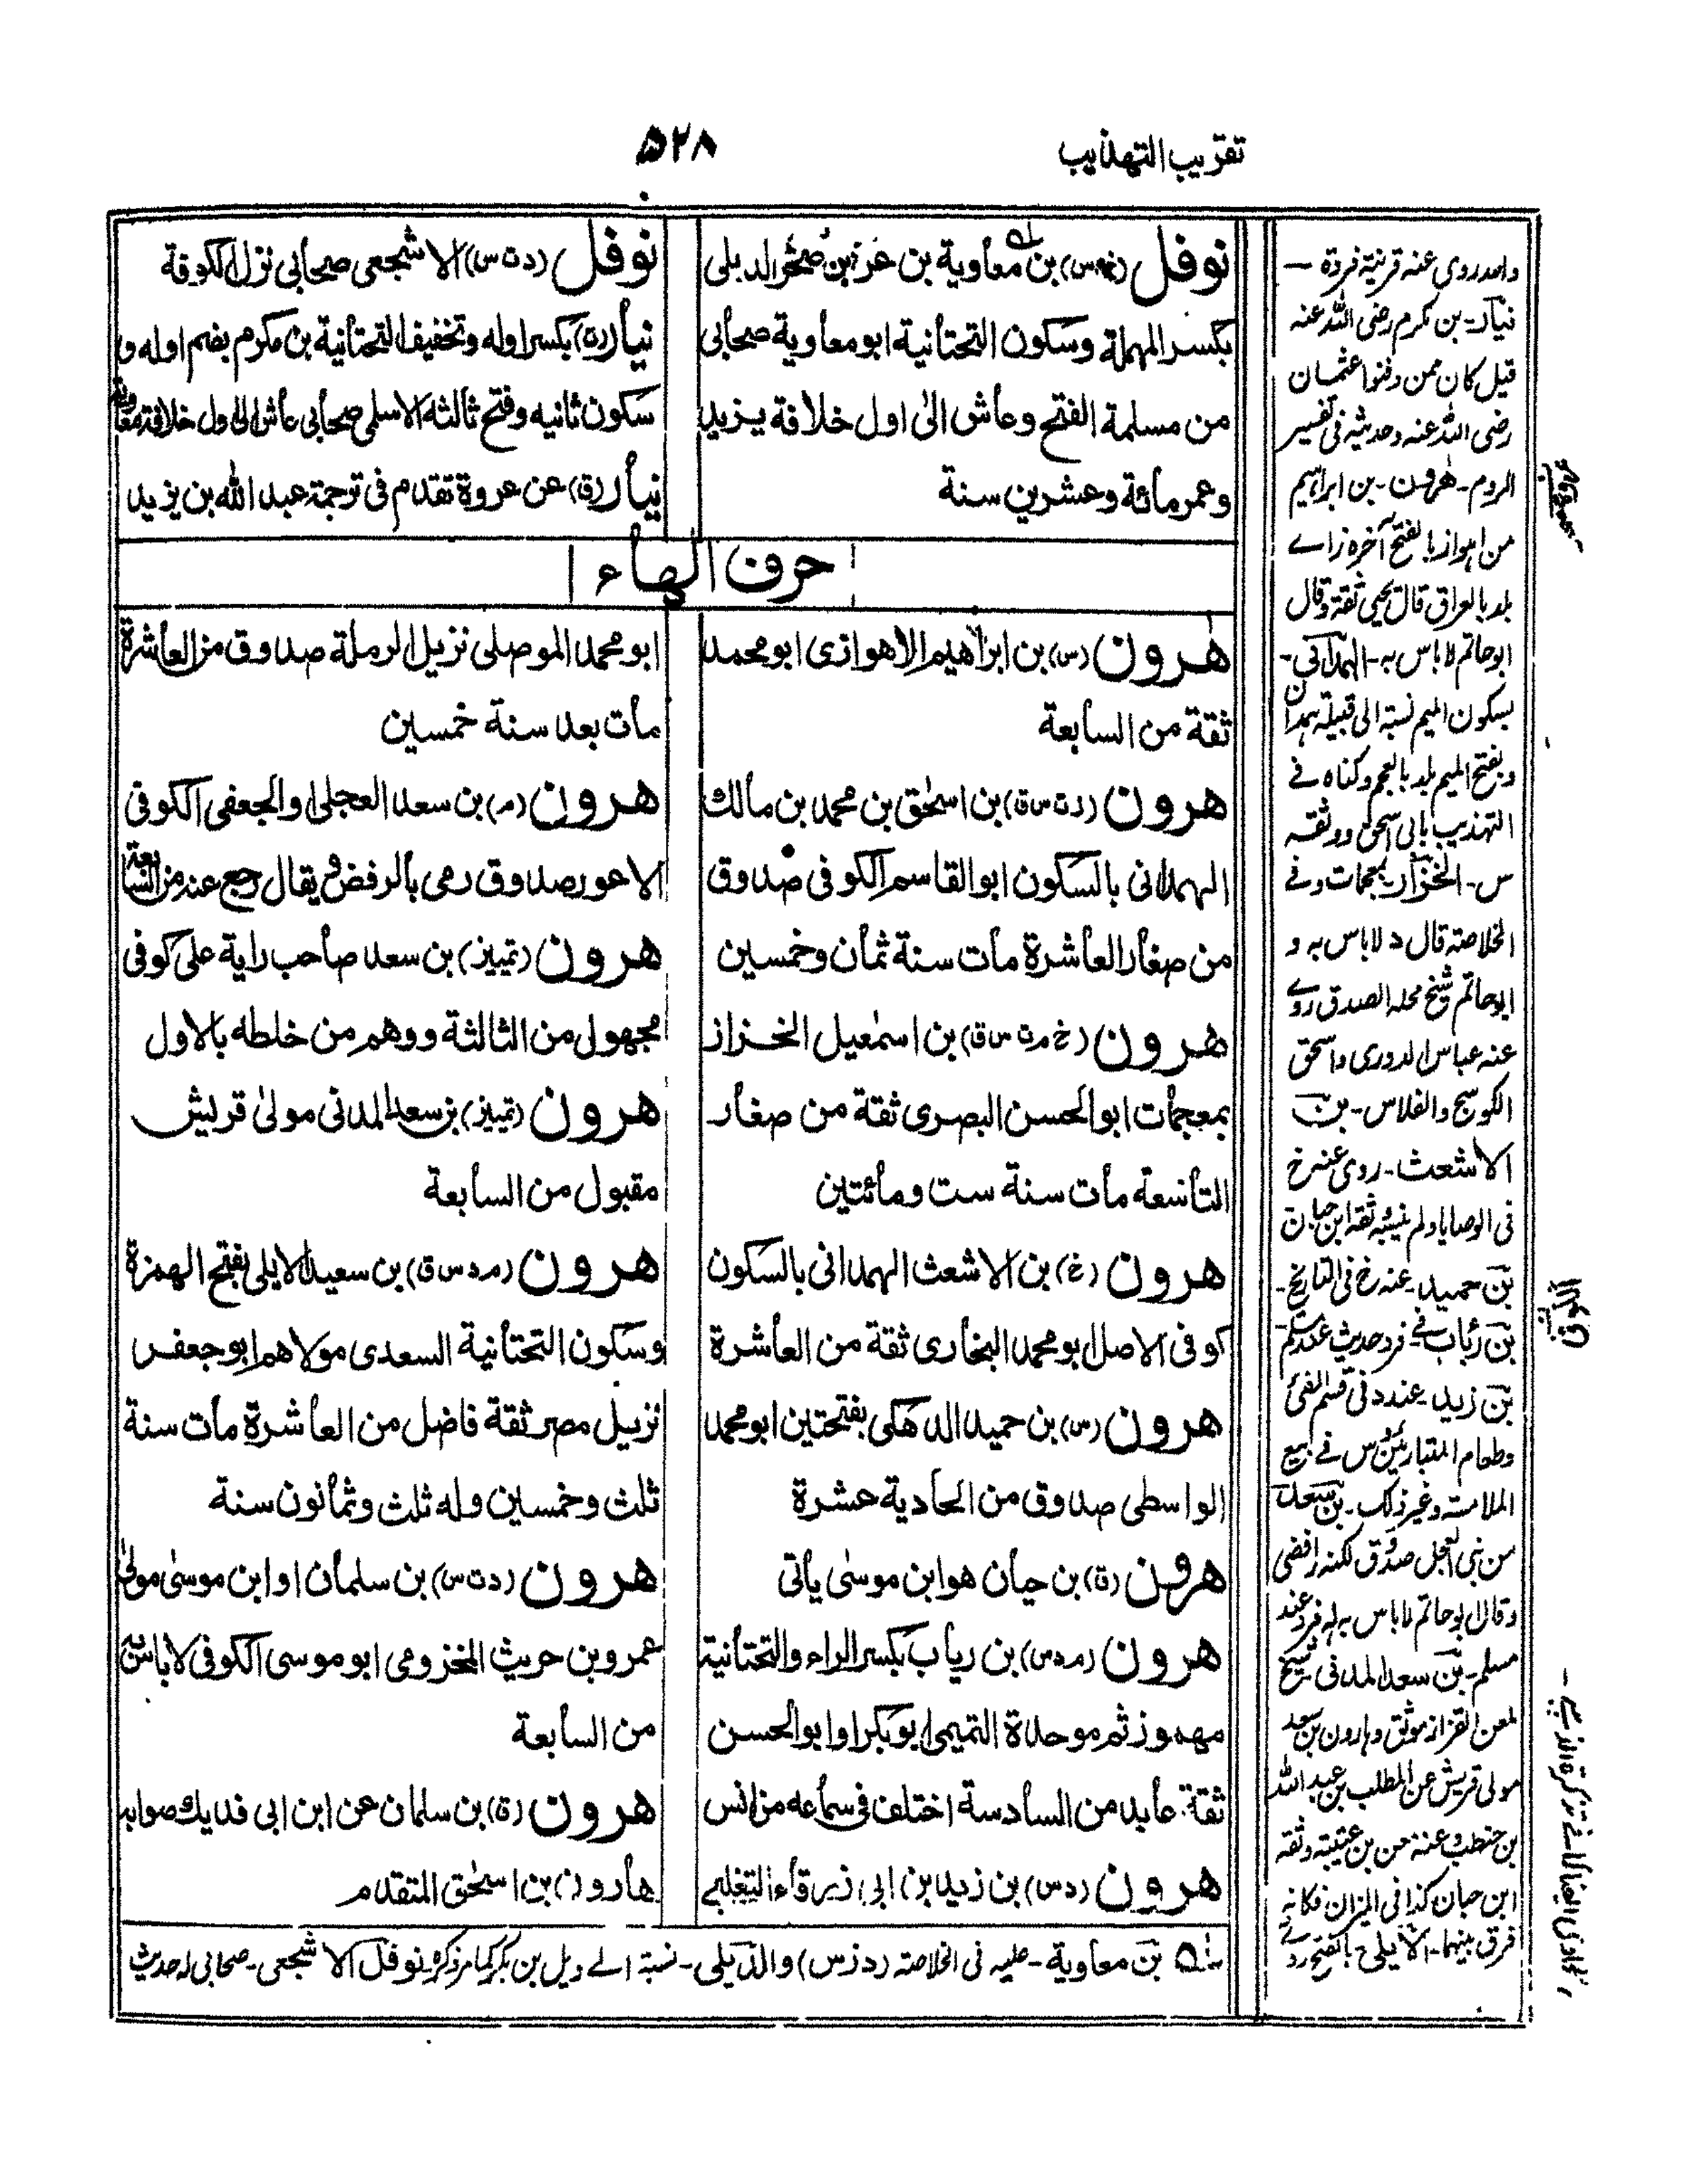 تقريب التهذيب
۵۲۸
نوفل (خ م س) بن معاوية بن عروة بن صخر الديلى
بكسر المهملة وسكون التحتانية ابو معاوية صحابى
من مسلمة الفتح وعاش الى اول خلافة يزيد
وعمر مائة وعشرين سنة
نوفل (د ت س) الاشجعى صحابى نزل الكوفة
نيار (ت) بكسر اوله وتخفيف التحتانية بن مكرم بضم اوله و
سكون ثانيه وفتح ثالثه الاسلمى صحابى عاش الى اول خلافة معاوية
نيار (ق) عن عروة تقدم فى ترجمة عبد الله بن يزيد
حرف الهاء
هٰرون (س) بن ابراهيم الاهوازى ابو محمد
ثقة من السابعة
هرون (ر ت س ق) بن اسحٰق بن محمد بن مالك
الهمدانى بالسكون ابو القاسم الكوفى صدوق
من صغار العاشرة مات سنة ثمان وخمسين
هرون (خ م ت س ق) بن اسمٰعيل الخزاز
بمعجمات ابو الحسن البصرى ثقة من صغار
التاسعة مات سنة ست ومائتين
هرون (خ) بن الاشعث الهمدانى بالسكون
كوفى الاصل ابو محمد البخارى ثقة من العاشرة
هرون (س) بن حميد الدهكى بفتحتين ابو محمد
الواسطى صدوق من الحادية عشرة
هرون (ت) بن حيان هو ابن موسىٰ يأتى
هرون (م د س) بن رياب بكسر الراء والتحتانية
مهموز ثم موحدة التميمى ابو بكر او ابو الحسن
ثقة عابد من السادسة اختلف فى سماعه من انس
هرون (د س) بن زيد بن ابى زرقاء التغلبے
ابو محمد الموصلى نزيل الرملة صدوق من العاشرة
مات بعد سنة خمسين
هرون (م) بن سعد العجلى او الجعفى الكوفى
الاعور صدوق رمى بالرفض ويقال رجع عنه من السابعة
هرون (تمييز) بن سعد صاحب راية على كوفى
مجهول من الثالثة ووهم من خلطه بالاول
هرون (تمييز) بن سعد المدنى مولىٰ قريش
مقبول من السابعة
هرون (م د س ق) بن سعيد الايلى بفتح الهمزة
وسكون التحتانية السعدى مولاهم ابو جعفر
نزيل مصر ثقة فاضل من العاشرة مات سنة
ثلث وخمسين وله ثلث وثمانون سنة
هرون (د ت س) بن سلمان او ابن موسىٰ مولىٰ
عمرو بن حريث المخزومى ابو موسى الكوفى لا باس به
من السابعة
هرون (ق) بن سلمان عن ابن ابى فديك صوابه
هارون بن اسحٰق المتقدم
بن معاوية - عليه فى الخلاصة (د ز س) والديلى - نسبة الے ديل بن بكر كما مر ذكره نوفل الاشجعى - صحابى له حديث
واحد روى عنه قرنية فروة —
نيار - بن مكرم رضى الله عنه
قيل كان ممن دفنوا عثمان
رضى الله عنه وحديثه فى تفسير
الروم - هٰرون - بن ابراهيم
من اهواز بالفتح آخره زاے
بلد بالعراق قال يحيى ثقة وقال
ابو حاتم لا باس به - الهمدانى -
بسكون الميم نسبة الى قبيلة همدان
وبفتح الميم بلد بالعجم وكناه فے
التهذيب بابى اسحق ووثقه
س - الخزاز - بمعجمات وفے
الخلاصة قال د لا باس به و
ابو حاتم شيخ محله الصدق روے
عنه عباس الدورى واسحق
الكوسج والفلاس - بن
الاشعث - روى عنه خ
فى الوصايا ولم ينسبه وثقه ابن حبان
بن حميد - عنه خ فى التاريخ -
بن رئاب - فے فرد حديث عند مسلم -
بن زيد - عند د فى قسم الفئ
وطعام المتبارئين وس فے بيع
الملامسة وغير ذلك - بن سعد
صدوق لكنه رافضى
وقال ابو حاتم لا باس به له فرد عند
مسلم - بن سعد المدنى - شيخ
لمعن القزاز موثق وهارون بن سعد
مولى قريش عن المطلب بن عبد الله
بن حنطب وعنه
ابن حبان كذا فى الميزان فكانه
فرق بينهما - الايلى - بالفتح